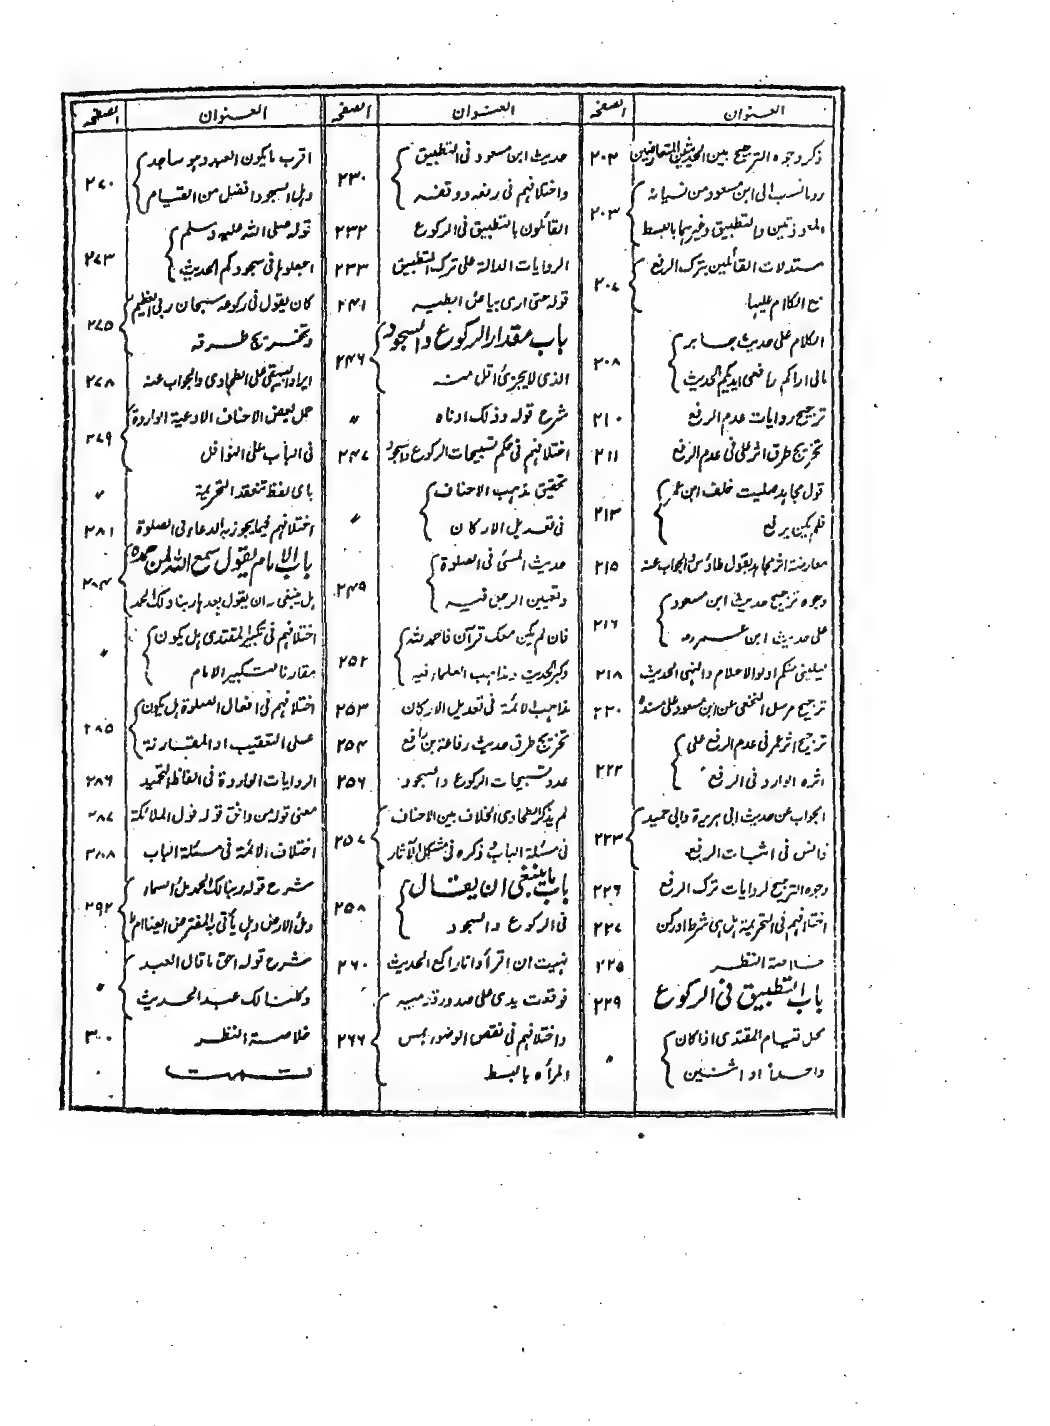 العنوان
الصفحة
ذكر وجوه الترجيح بين الحديثين المتعارضين ٢٠٢
رد ما نسب الى ابن مسعود من نسيانه
المعوذتين والتطبيق وغيرهما بالبسط ٢٠٣
مستدلات القائلين بترك الرفع
مع الكلام عليها ٢٠٧
الكلام على حديث جابر
مالى اراكم رافعى ايديكم الحديث ٢٠٨
ترجيح روايات عدم الرفع ٢١٠
تخريج طرق اثر على فى عدم الرفع ٢١١
قول مجاهد صليت خلف ابن عمر
فلم يكن يرفع ٢١٣
معارضة اثر مجاهد بقول طاؤس والجواب عنه ٢١٥
وجوه ترجيح حديث ابن مسعود
على حديث ابن عمر ٢١٦
ليلينى منكم اولو الاحلام والنهى الحديث ٢١٨
ترجيح مرسل النخعى عن ابن مسعود على مسنده ٢٢٠
ترجيح اثر عمر فى عدم الرفع على
اثره الوارد فى الرفع ٢٢٢
الجواب عن حديث ابى هريرة وابى حميد
وانس فى اثبات الرفع ٢٢٣
وجوه الترجيح لروايات ترك الرفع ٢٢٦
اختلافهم فى التحريمة هل هى شرط او ركن ٢٢٧
خلاصة النظر ٢٢٥
باب التطبيق فى الركوع ٢٢٩
محل قيام المقتدى اذا كان
واحدا او اثنين ״
العنوان
الصفحة
حديث ابن مسعود فى التطبيق
واختلافهم فى رفعه ووقفه ٢٣٠
القائلون بالتطبيق فى الركوع ٢٣٢
الروايات الدالة على ترك التطبيق ٢٣٣
قوله حتى ارى بياض ابطيه ٢٤١
باب مقدار الركوع والسجود
الذى لا يجزئ اقل منه ٢٤٦
شرح قوله وذلك ادناه ״
اختلافهم فى حكم تسبيحات الركوع والسجود ٢٤٧
تحقيق مذهب الاحناف
فى تعديل الاركان ״
حديث المسئ فى الصلوة
وتعيين الرجل فيه ٢٤٩
فان لم يكن معك قرآن فاحمد الله
وكبر الحديث ومذاهب العلماء فيه ٢٥٢
مذاهب الائمة فى تعديل الاركان ٢٥٣
تخريج طرق حديث رفاعة بن رافع ٢٥٤
عدد تسبيحات الركوع والسجود ٢٥٦
لم يذكر الطحاوى الخلاف بين الاحناف
فى مسئلة الباب وذكره فى مشكل الآثار ٢٥٧
باب ما ينبغى ان يقال
فى الركوع والسجود ٢٥٨
نهيت ان اقرأ وانا راكع الحديث ٢٦٠
فوقعت يدى على صدور قدميه
واختلافهم فى نقض الوضوء بمس
المرأه بالبسط ٢٦٦
العنوان
الصفحة
اقرب ما يكون العبد وهو ساجد
وهل السجود افضل من القيام ٢٧٠
قوله صلى الله عليه وسلم
اجعلوها فى سجودكم الحديث ٢٧٣
كان يقول فى ركوعه سبحان ربى العظيم
وتخريج طرقه ٢٧٥
ايراد البيهقى على الطحاوى والجواب عنه ٢٧٨
حمل بعض الاحناف الادعية الواردة
فى الباب على النوافل ٢٧٩
باى لفظ تنعقد التحريمة ״
اختلافهم فيما يجوز به الدعاء فى الصلوة ٢٨١
باب الامام يقول سمع الله لمن حمده
هل ينبغى له ان يقول بعدها ربنا ولك الحمد ٢٨٤
اختلافهم فى تكبير المقتدى هل يكون
مقارنا لتكبير الامام ״
اختلافهم فى افعال الصلوة هل يكون
على التعقيب او المقارنة ٢٨٥
الروايات الواردة فى الفاظ التحميد ٢٨٦
معنى قوله من وافق قوله قول الملائكة ٢٨٧
اختلاف الائمة فى مسئلة الباب ٢٨٨
شرح قوله ربنا لك الحمد ملئ السماء
وملئ الارض وهل يأتى به المفترض ايضا ام لا ٢٩٢
شرح قوله احق ما قال العبد
وكلنا لك عبد الحديث ״
خلاصة النظر ٣٠٠
تمت